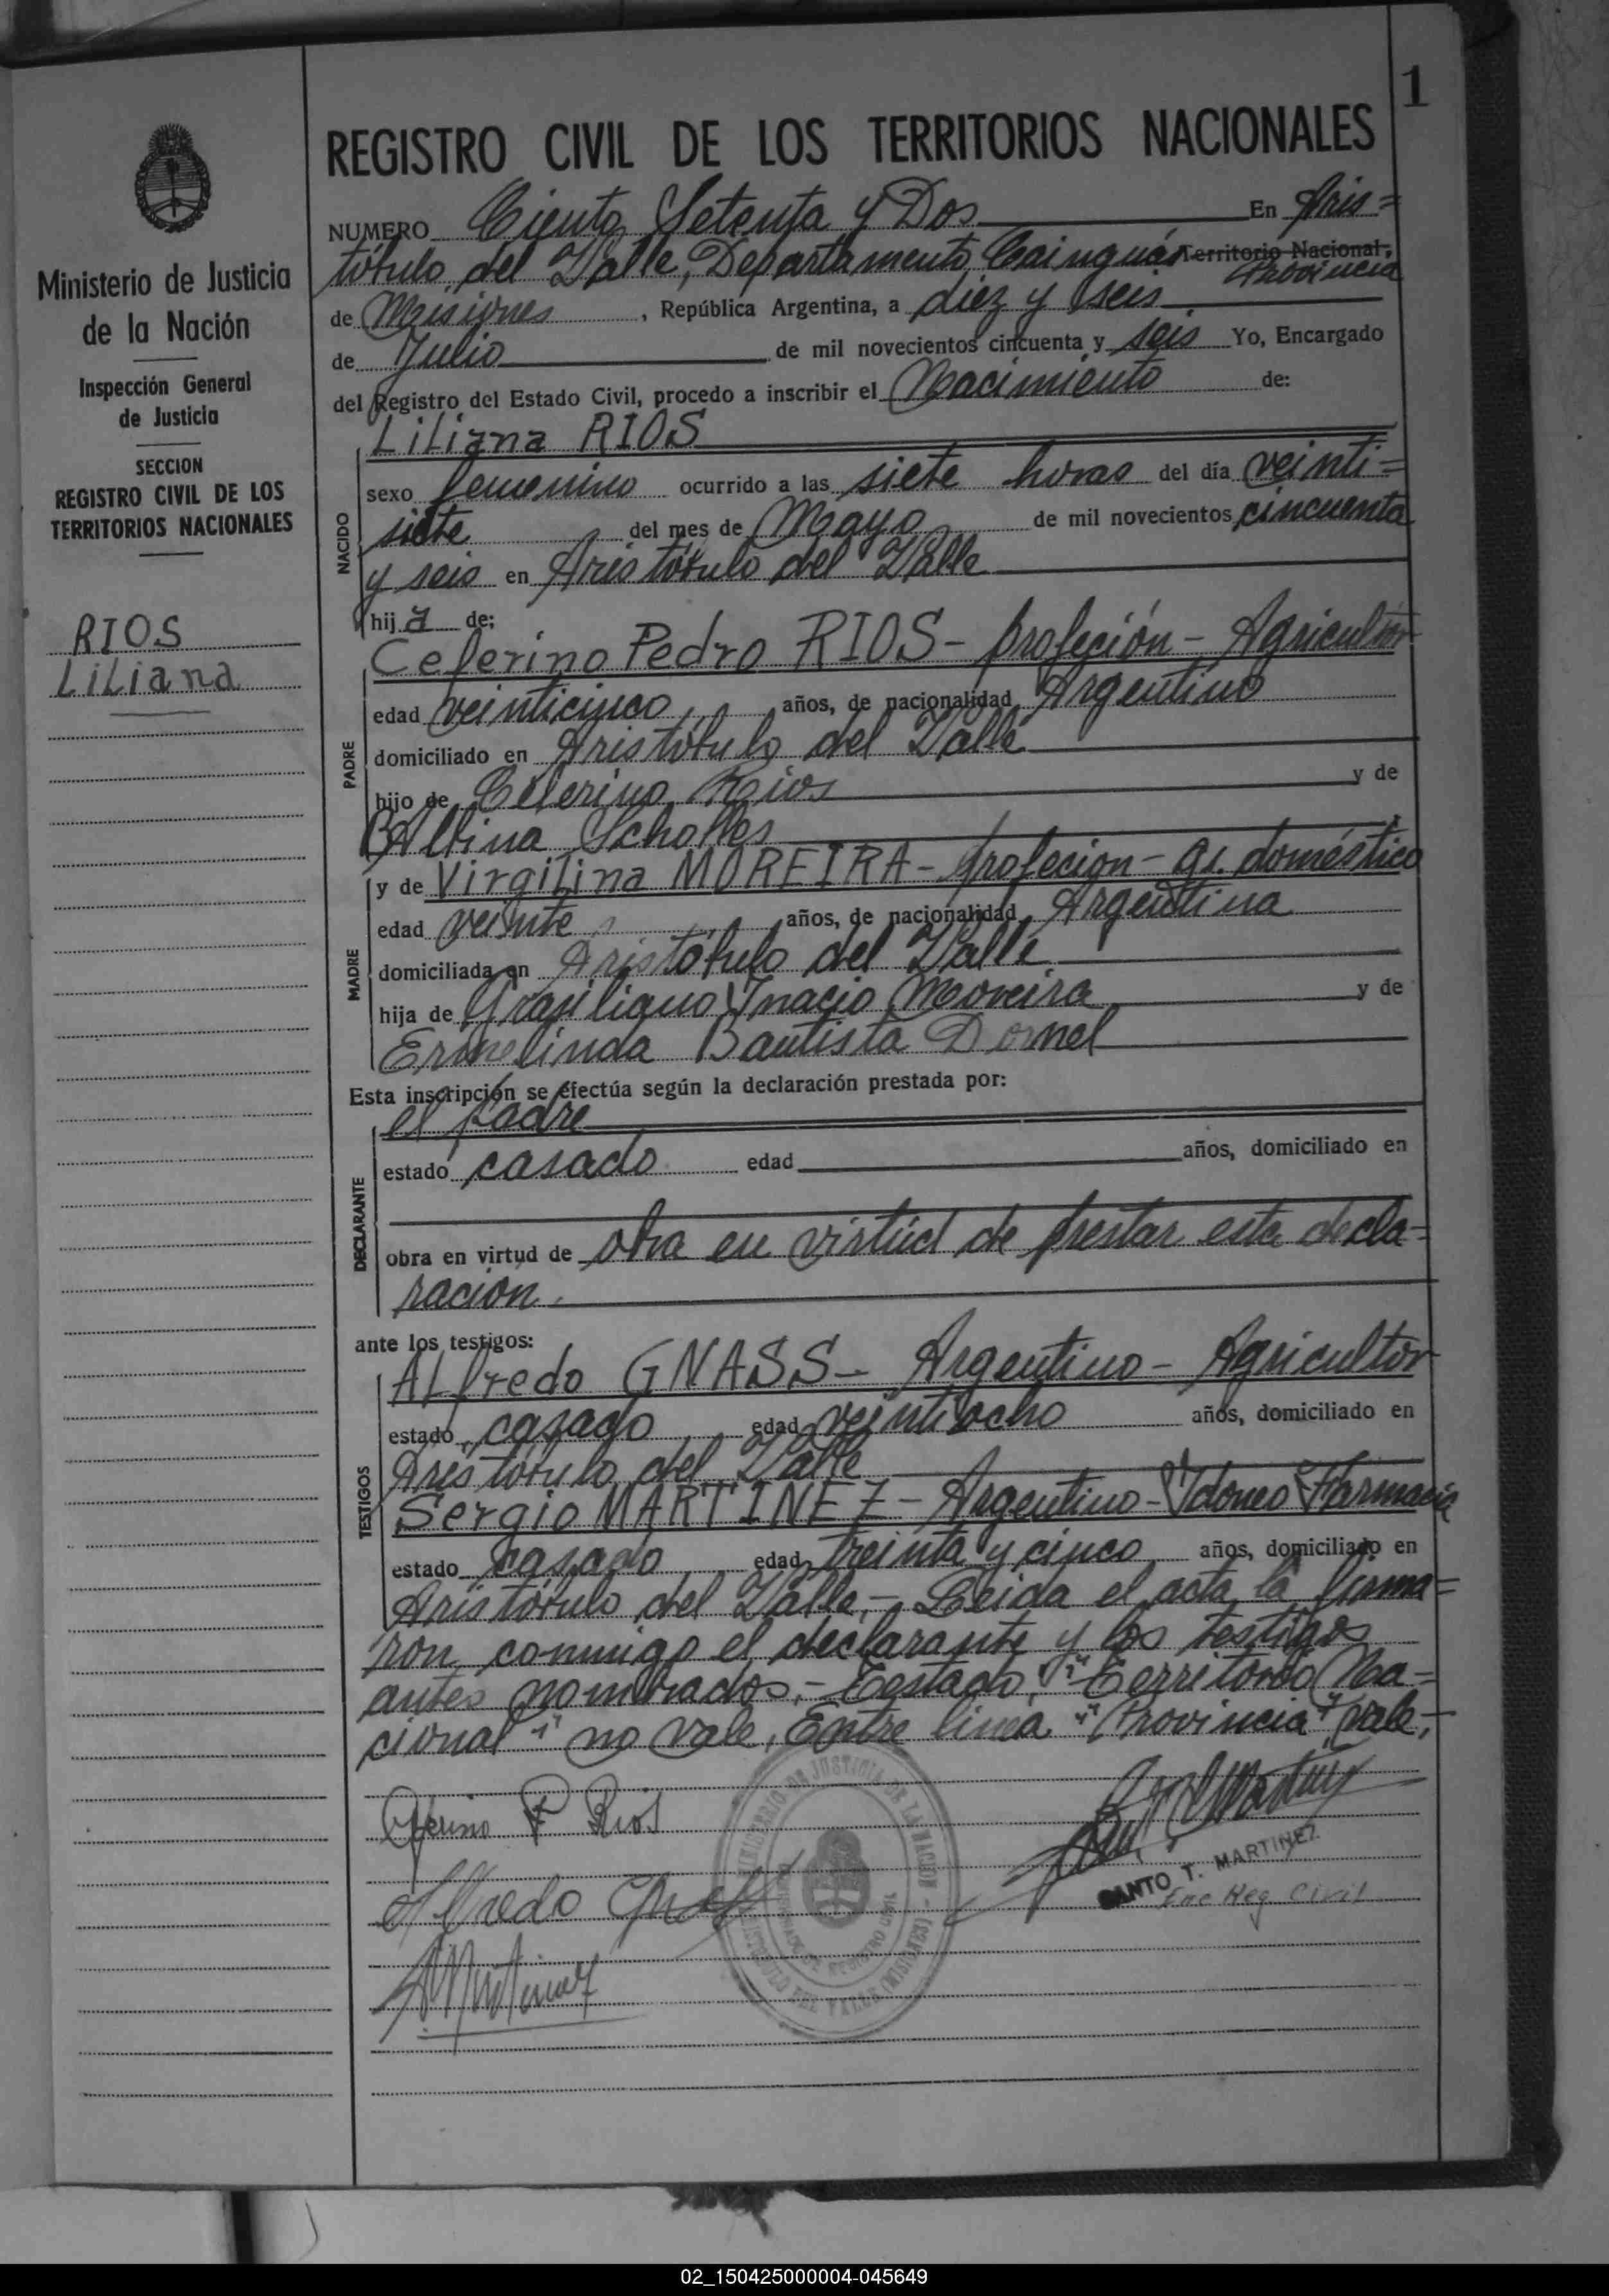 1
REGISTRO CIVIL DE LOS TERRITORIOS NACIONALES
Ministerio de Justicia
de la Nación
Inspección General
de Justicia
SECCION
REGISTRO CIVIL DE LOS
TERRITORIOS NACIONALES
RIOS
Liliana
NUMERO Ciento Setenta y Dos En Aris=
tóbulo del Valle, Departamento Cainguás Territorio Nacional, Provincia
de Misiones, República Argentina, a diez y seis
de Julio de mil novecientos cincuenta y seis Yo, Encargado
del Registro del Estado Civil, procedo a inscribir el Nacimiento de:
NACIDO
Liliana RIOS
sexo femenino ocurrido a las siete horas del día veinti=
siete del mes de Mayo de mil novecientos cincuenta
y seis en Aristóbulo del Valle
hija de:
PADRE
Ceferino Pedro RIOS - profeción - Agricultor
edad veinticinco años, de nacionalidad Argentino
domiciliado en Aristóbulo del Valle
hijo de Ceferino Rios y de
Albina Scholles
MADRE
y de Virgilina MOREIRA - profecion - qs. doméstico
edad veinte años, de nacionalidad Argentina
domiciliada en Aristóbulo del Valle
hija de Ynacio Moreira y de
Ermelinda Bautista Dornel
Esta inscripción se efectúa según la declaración prestada por:
DECLARANTE
el padre
estado casado edad años, domiciliado en
obra en virtud de obra en virtúd de prestar esta decla-
ración.
ante los testigos:
TESTIGOS
Alfredo GNASS - Argentino - Agricultor
estado casado edad veintiocho años, domiciliado en
Aristóbulo del Valle
Sergio MARTINEZ - Argentino - Ydoneo Farmacia
estado casado edad treinta y cinco años, domiciliado en
Aristóbulo del Valle.- Leida el acta la firma=
ron conmigo el declarante y los testigos
antes nombrados.- Testado: "Territorio Na-
cional" no vale, Entre linea "Provincia" vale,-
Ceferino P Rios
Alfredo Gnass
SMartinez
MINISTERIO DE JUSTICIA DE LA NACION
ARISTOBULO DEL VALLE (MISIONES)
SANTO T. MARTINEZ
Enc Reg Civil
02_150425000004-045649